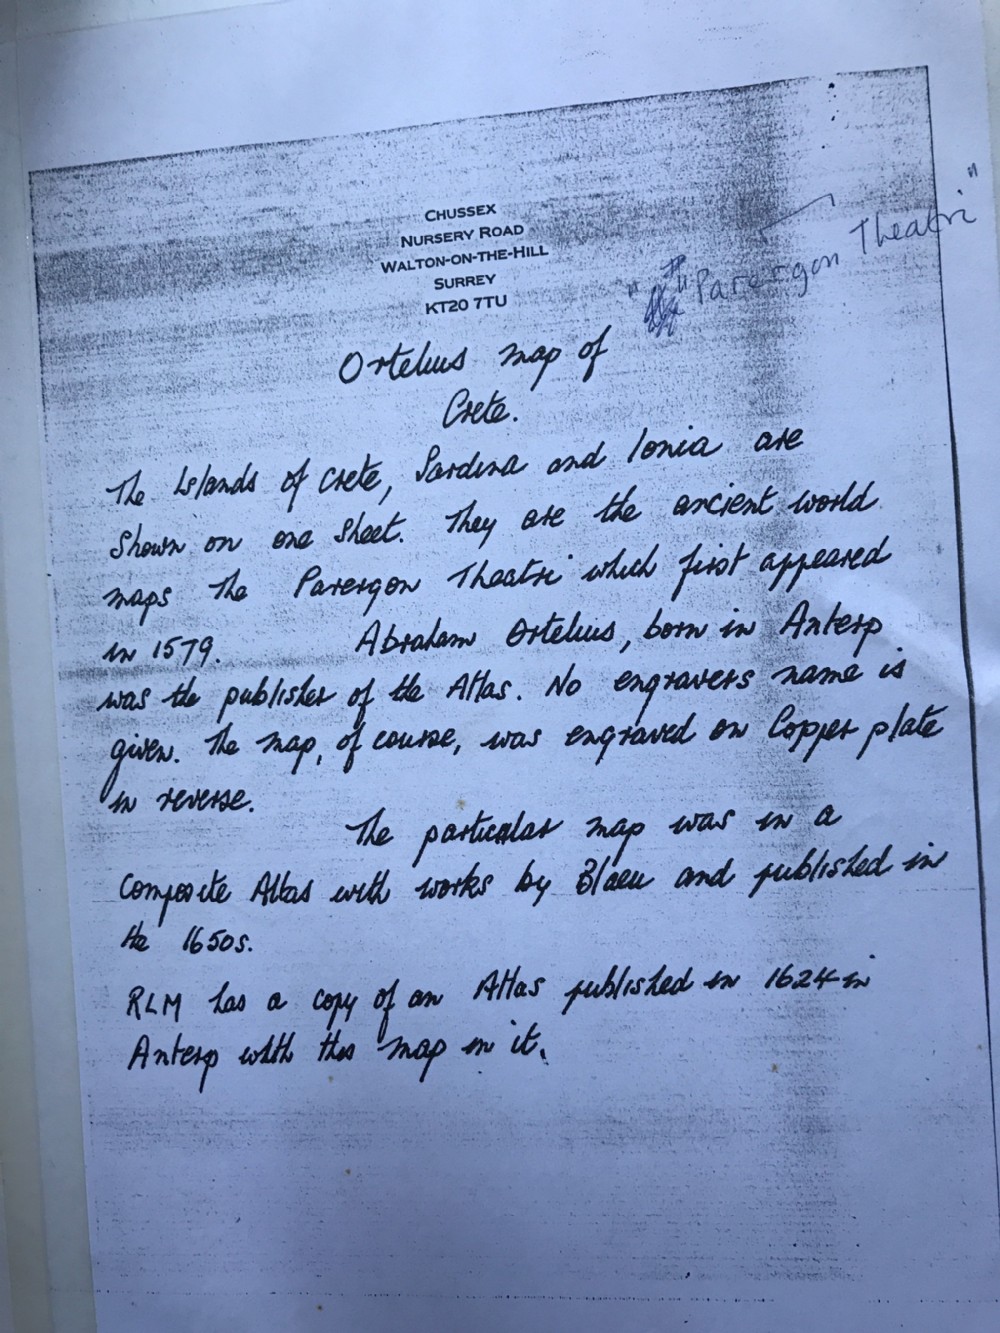 CHUSSEX
NURSERY ROAD
WALTON-ON-THE-HILL
SURREY
KT20 7TU
"Parergon Theatri"
Ortelius map of
Crete.
The Islands of Crete, Sardina and Ionia are
Shown on one sheet. They are the ancient world
maps The Parergon Theatri which first appeared
in 1579. Abraham Ortelius, born in Anterp
was the publisher of the Atlas. No engravers name is
given. The map, of course, was engraved on Copper plate
in reverse.
The particular map was in a
Composite Atlas with works by Blaeu and published in
the 1650s.
RLM has a copy of an Atlas published in 1624 in
Anterp with this map in it.